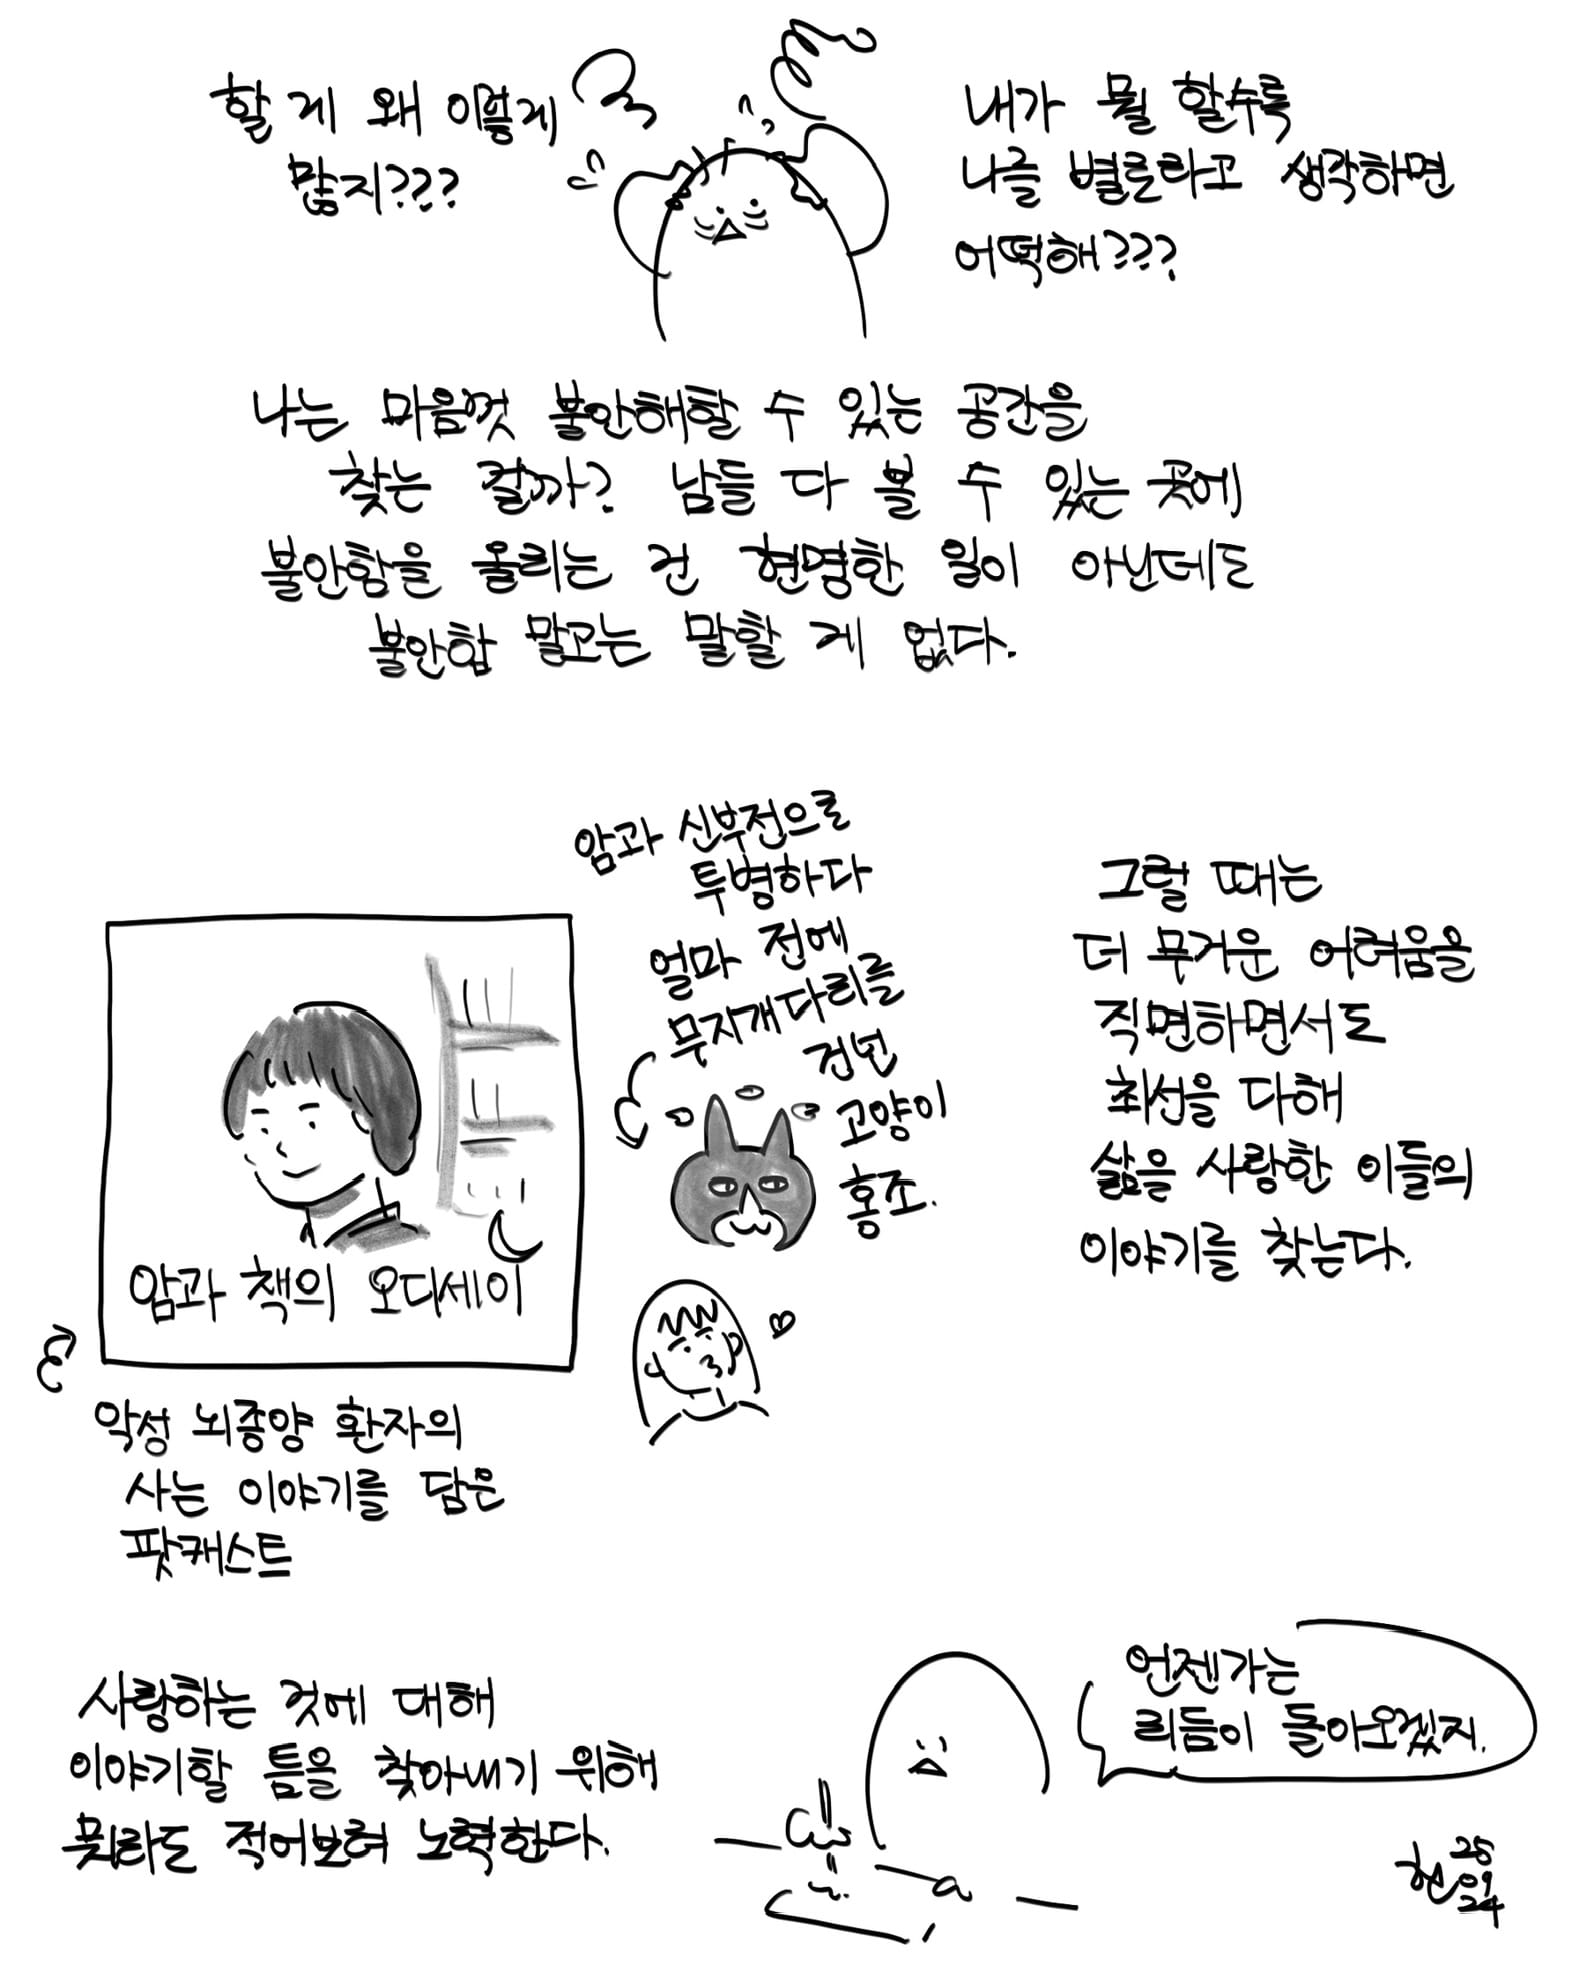 할 게 왜 이렇게
많지???
내가 뭘 할수록
나를 별로라고 생각하면
어떡해???
나는 마음껏 불안해할 수 있는 공간을
찾는 걸까? 남들 다 볼 수 있는 곳에
불안함을 올리는 건 현명한 일이 아닌데도
불안함 말고는 말할 게 없다.
암과 신부전으로
투병하다
얼마 전에
무지개다리를
건넌
고양이
홍조.
암과 책의 오디세이
악성 뇌종양 환자의
사는 이야기를 담은
팟캐스트
그럴 때는
더 무거운 어려움을
직면하면서도
최선을 다해
삶을 사랑한 이들의
이야기를 찾는다.
사랑하는 것에 대해
이야기할 틈을 찾아내기 위해
뭐라도 적어보려 노력한다.
언젠가는
리듬이 돌아오겠지.
현
25
09
24